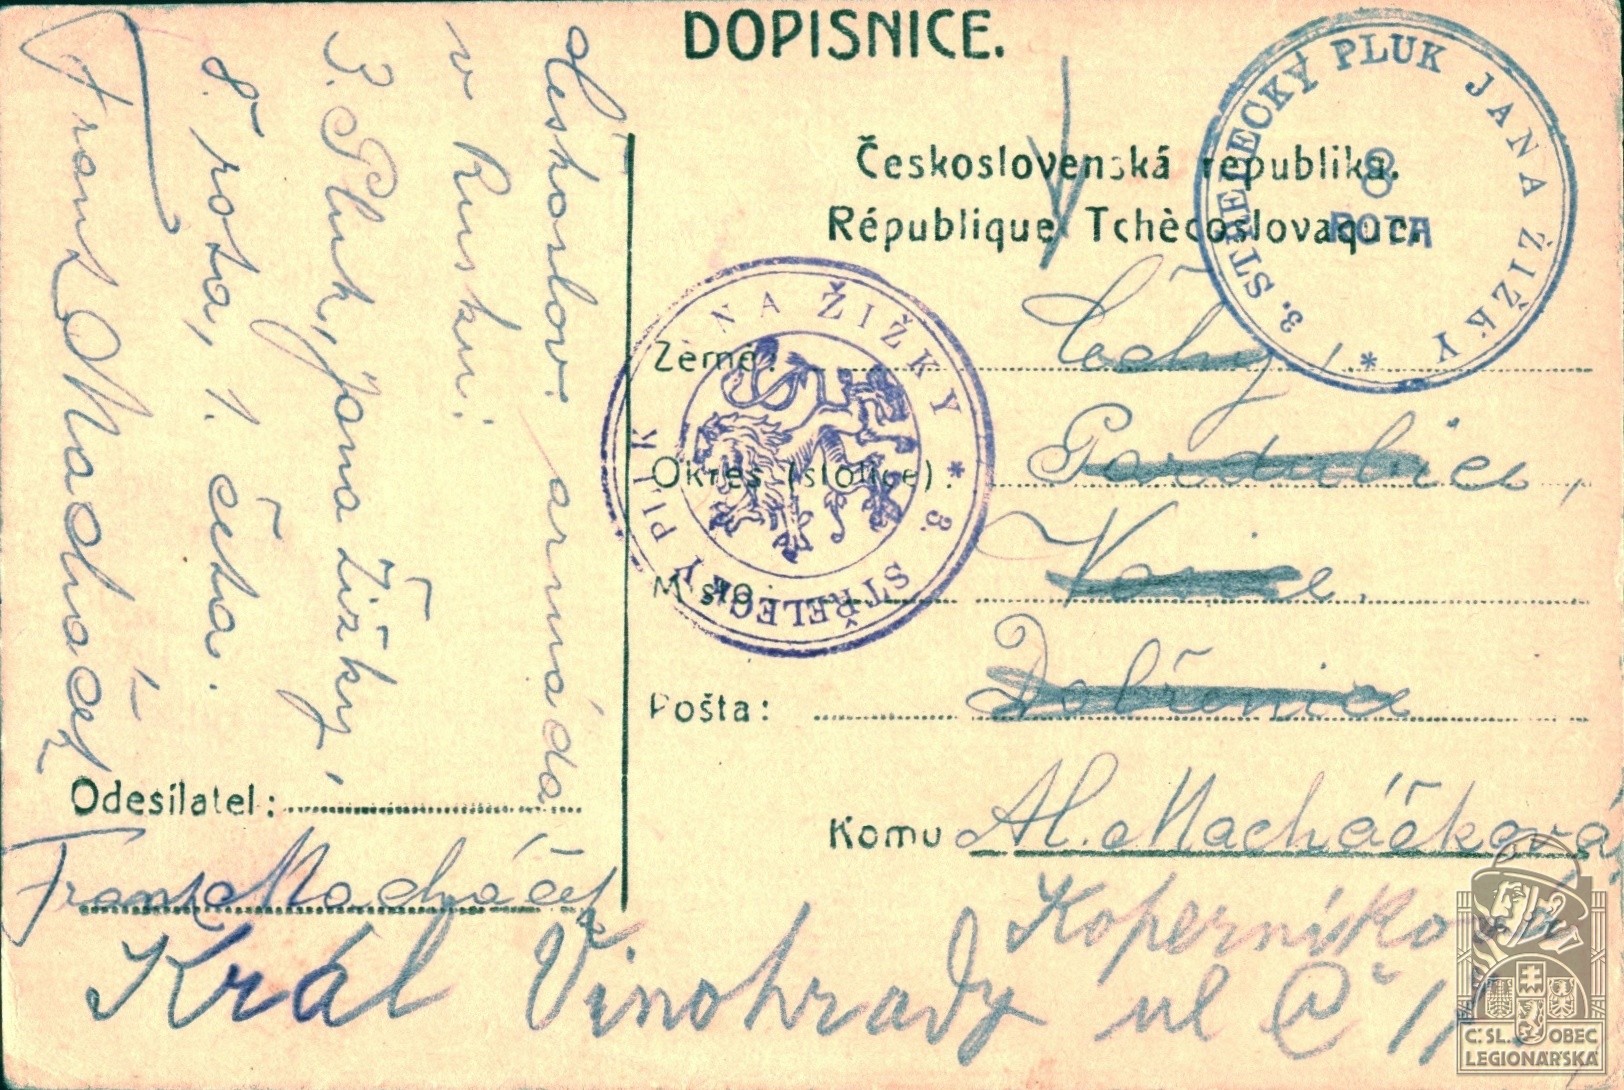 DOPISNICE.
Československá republika.
République Tchècoslovaque.
3. STŘELECKÝ PLUK JANA ŽIŽKY *
8
ROTA
* 3. STŘELECKÝ PLUK JANA ŽIŽKY
Českoslov. armáda
v Rusku.
3. Pluk, Jana Žižky,
8. rota, 1. četa.
Frant. Macháček
Země: Čechy,
Okres (stolice): Pardubice,
Místo:
Pošta: Dobřenice
Komu Al. Macháčková
Odesílatel:
Frant. Macháček
Koperníkova
Král Vinohrady ul Č
Č.SL. OBEC
LEGIONÁŘSKÁ